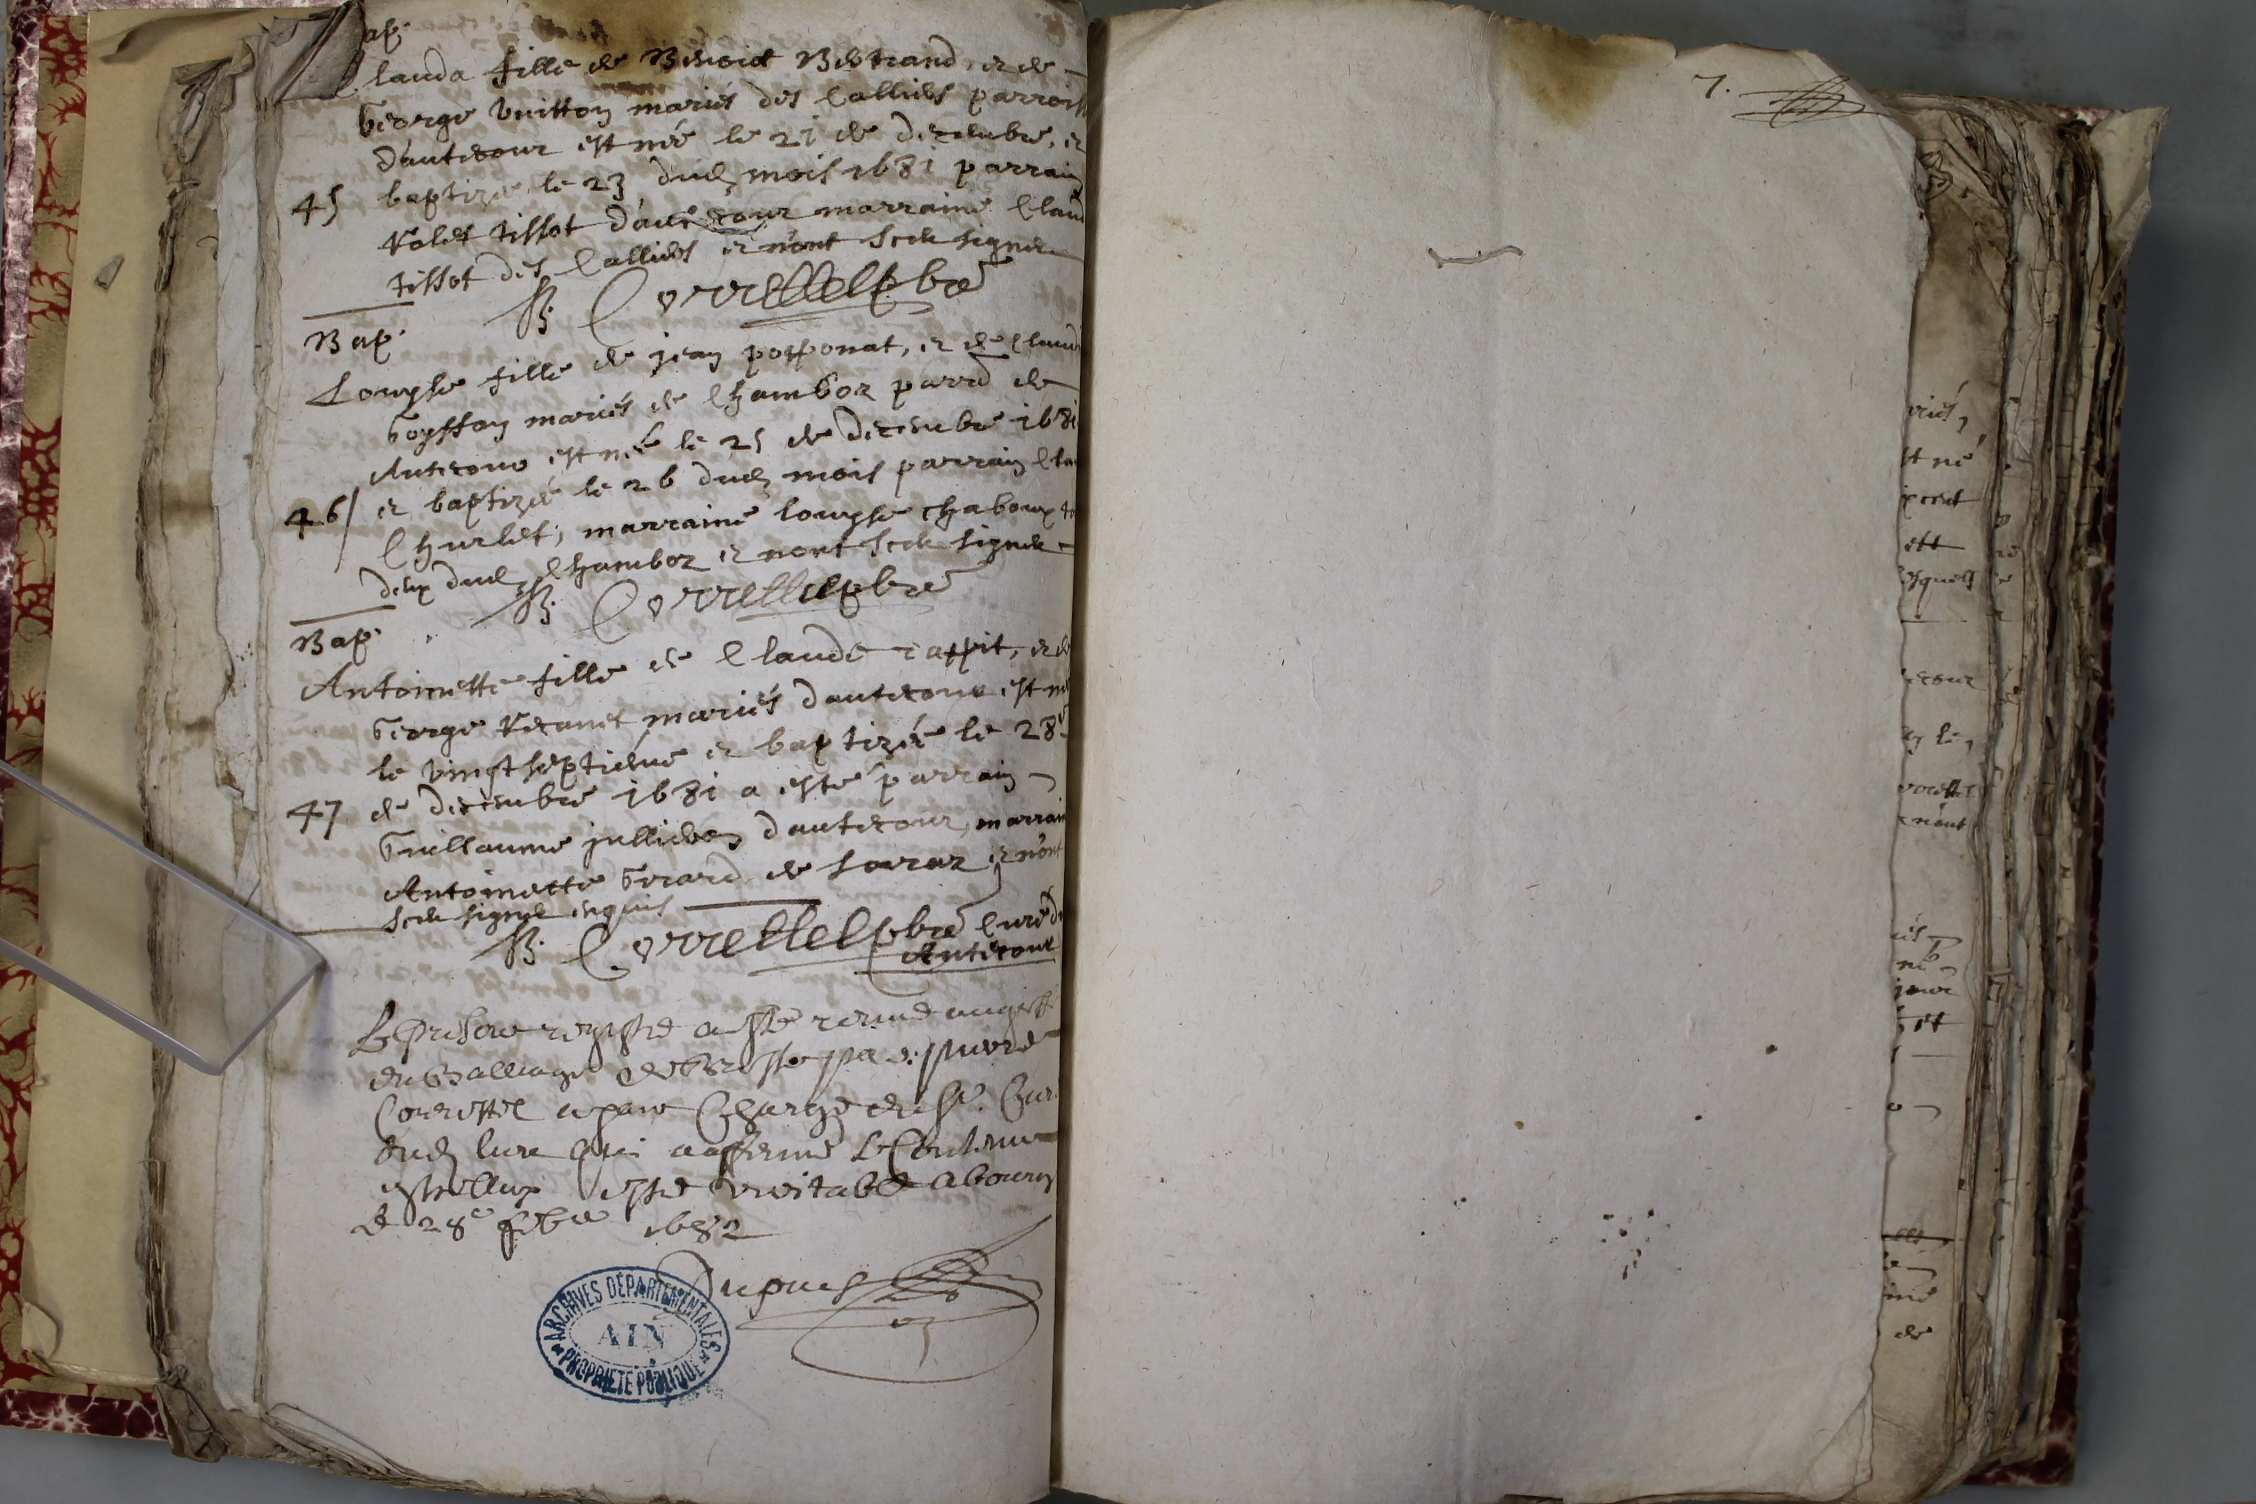 ap.
lauda fille de Benoict Bertrand, et de
George vuitton mariés des Calliers parroiss
d'antecour est née le 21 de decembre, et
45 baptizée le 23 dud. mois 1681 parrain
tissot d'antecour marraine Claud
tissot des Calliers et n'ont sceu signer
B. Correttel pbre
Bap.
Louyse fille de jean popponat, et de Claud
Goysson mariés de Chambor parr. de
Antecour est née le 25 de decembre 1681
46 et baptizée le 26 dud. mois parrain Cla
Churlet, marraine louyse chaboux to
deux dud. Chambor et n'ont sceu signer
B. Correttel pbre
Bap.
Antoinette fille de Claude rappit, et de
George mariés d'antecour est née
le vingt septieme et baptizée le 28
47 de decembre 1681 a esté parrain
Guillaume jullien d'antecour, marrain
Antoinette Girard de et n'ont
sceu signer enquis
B. Correttel pbre Curé d
Antecour
Le presant registre a esté remis au greffe
du Balliage de Bresse par
Correttel ayant Charge du Sr. Cur
dud. lieu qui a affirmé le Contenu
estre veritable a bourg
le 28e 1682
Dupuis
ARCHIVES DÉPARTEMENTALES
AIN
PROPRIÉTÉ PUBLIQUE
7.
riés
st né
ett
esquels
cour
le
n'ont
iés
né
de